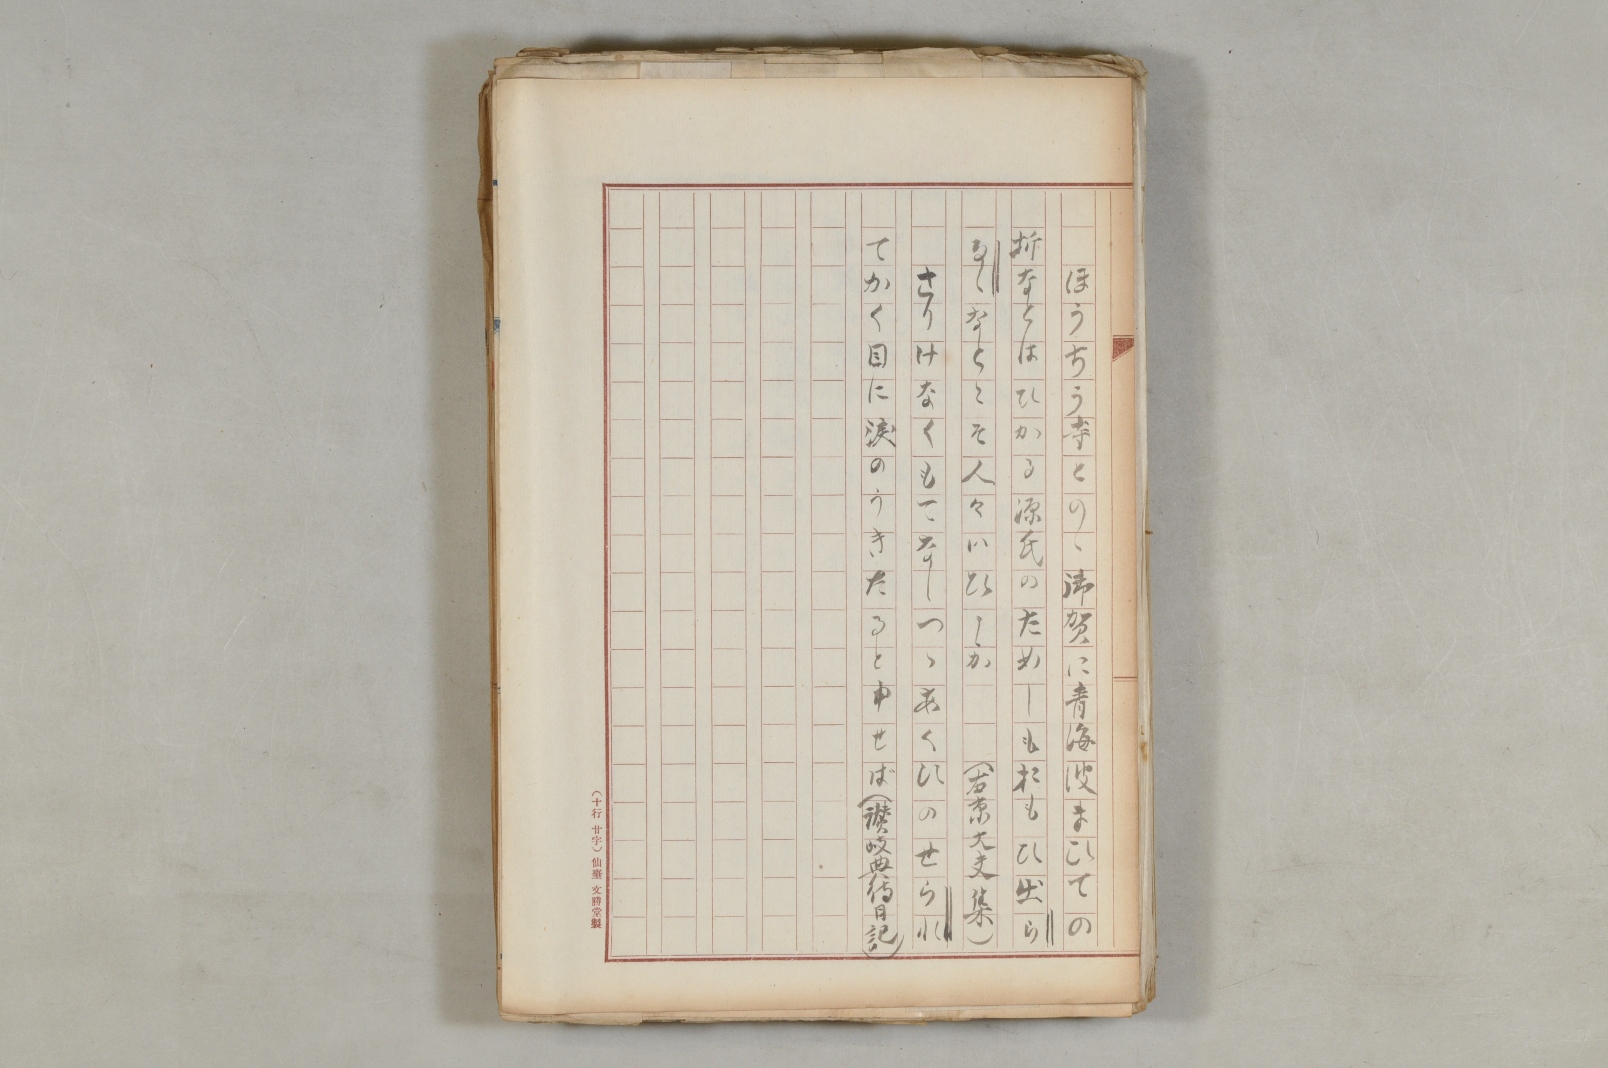 ほうぢう寺とのゝ御賀に青海波まひての
折なとはひかる源氏のためしもおもひ出ら
るゝなとこそ人々いひしか　（右京大夫集）
さりけなくもてなしつゝあくひのせられ
てかく目に涙のうきたると申せば（讃岐典侍日記）
（十行 廿字）仙臺 文勝堂製